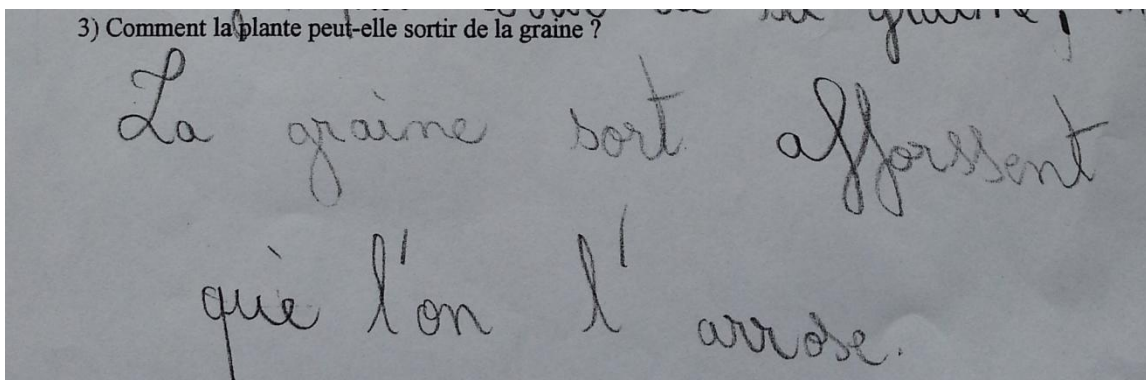 3) Comment la plante peut-elle sortir de la graine ?
La graine sort afforssent
que l'on l'arrose.